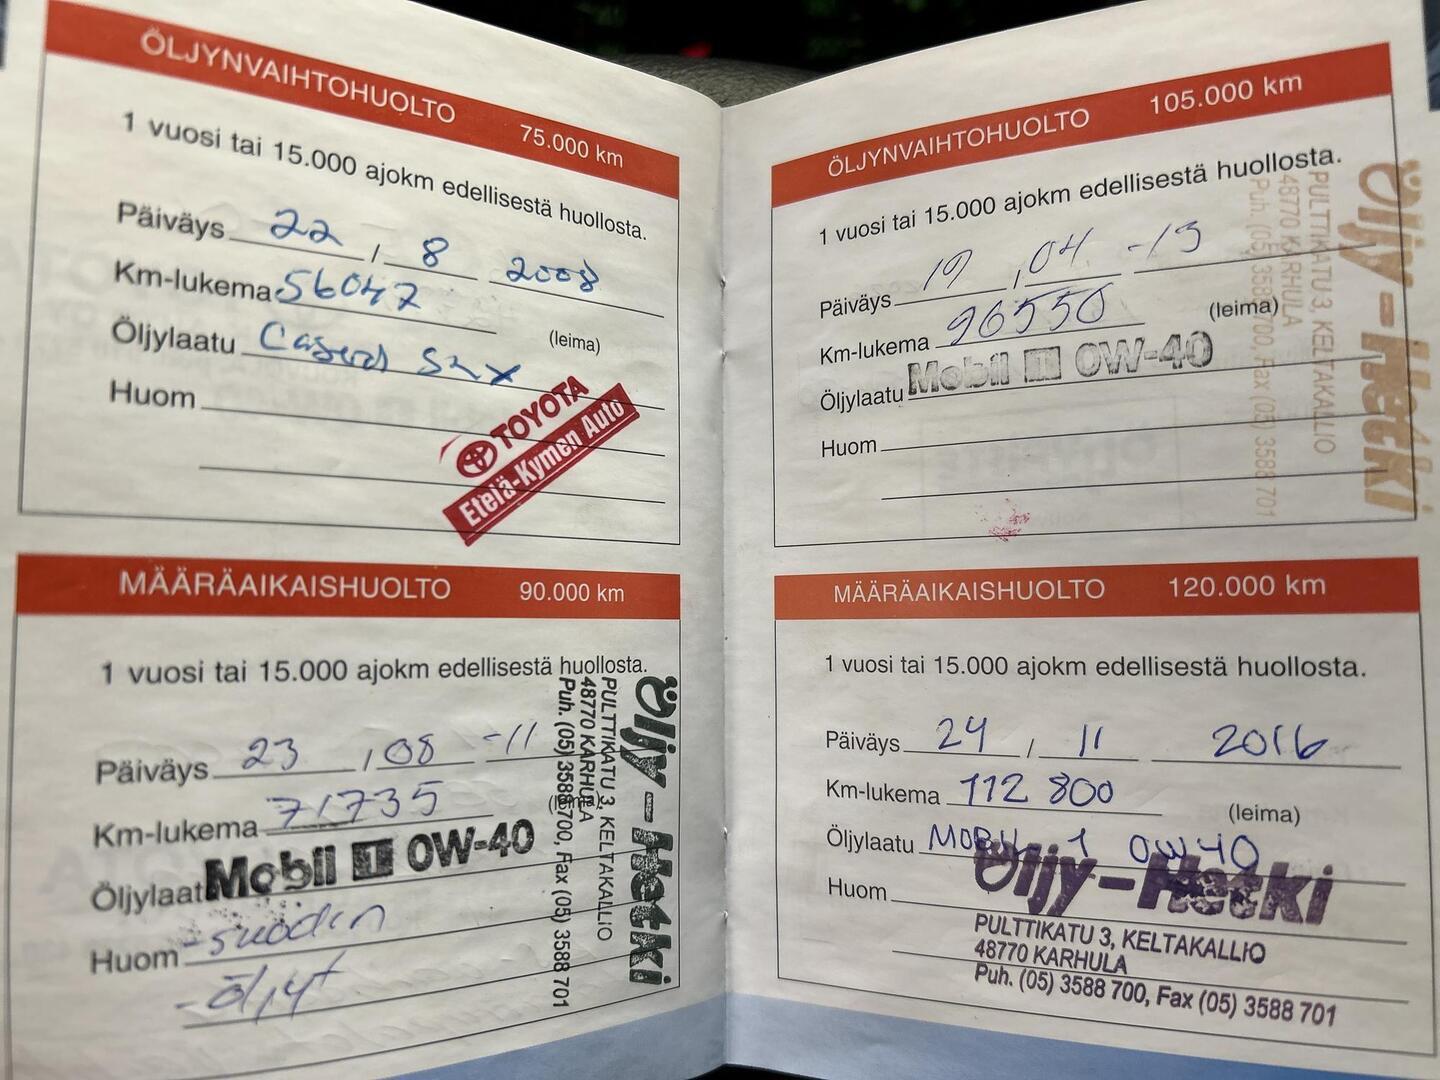 ÖLJYNVAIHTOHUOLTO 75.000 km
1 vuosi tai 15.000 ajokm edellisestä huollosta.
Päiväys 22 , 8 2008
Km-lukema 56047
(leima)
Öljylaatu
Huom
TOYOTA
Etelä-Kymen Auto
MÄÄRÄAIKAISHUOLTO 90.000 km
1 vuosi tai 15.000 ajokm edellisestä huollosta.
Päiväys 23 , 08 -11
Km-lukema 71735
(leima)
Öljylaatu Mobil 1 0W-40
Huom -suodin
-öljyt
Öljy-Hetki
PULTTIKATU 3, KELTAKALLIO
48770 KARHULA
Puh. (05) 3588 700, Fax (05) 3588 701
ÖLJYNVAIHTOHUOLTO 105.000 km
1 vuosi tai 15.000 ajokm edellisestä huollosta.
Päiväys 19 , 04 -13
Km-lukema 96550
(leima)
Öljylaatu Mobil 1 0W-40
Huom
Öljy-Hetki
PULTTIKATU 3, KELTAKALLIO
48770 KARHULA
Puh. (05) 3588 700, Fax (05) 3588 701
MÄÄRÄAIKAISHUOLTO 120.000 km
1 vuosi tai 15.000 ajokm edellisestä huollosta.
Päiväys 24 / 11 2016
Km-lukema 112 800
(leima)
Öljylaatu MOBIL 1 0W40
Huom
Öljy-Hetki
PULTTIKATU 3, KELTAKALLIO
48770 KARHULA
Puh. (05) 3588 700, Fax (05) 3588 701